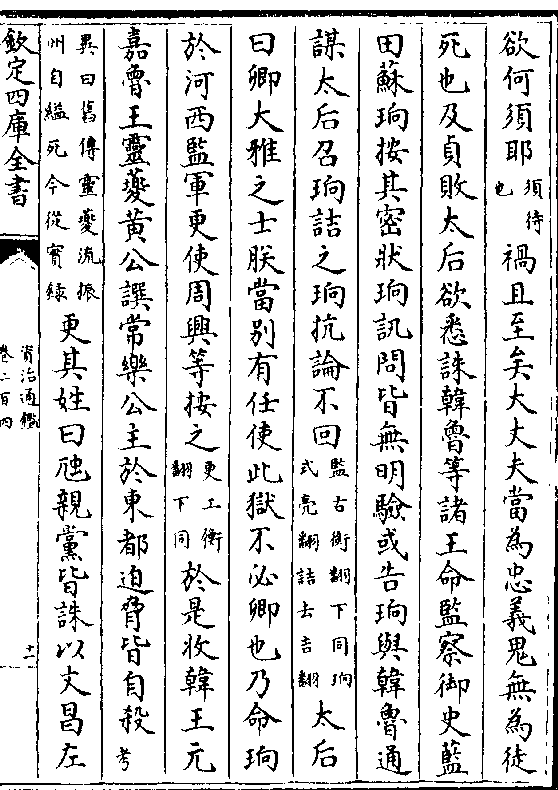 欲何須耶須待也禍且至矣大丈夫當為忠義鬼無為徒
死也及貞敗太后欲悉誅韓魯等諸王命監察御史藍
田蘇珦按其密狀珦訊問皆無明驗或告珦與韓魯通
謀太后召珦詰之珦抗論不回監古銜翻下同珦式亮翻詰去吉翻太后
曰卿大雅之士朕當别有任使此獄不必卿也乃命珦
於河西監軍更使周興等按之更工衡翻下同於是收韓王元
嘉魯王靈夔黄公譔常樂公主於東都迫脅皆自殺考
異曰舊傳靈夔流振州自縊死今從實録更其姓曰虺親黨皆誅以文昌左
欽定四庫全書
資治通鑑
卷二百四
十一